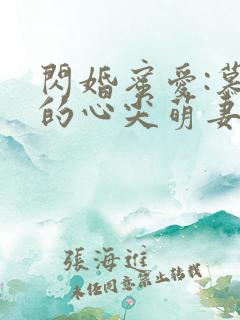 閃婚蜜愛:慕
的心尖萌妻
張海進
未經同意禁止轉載